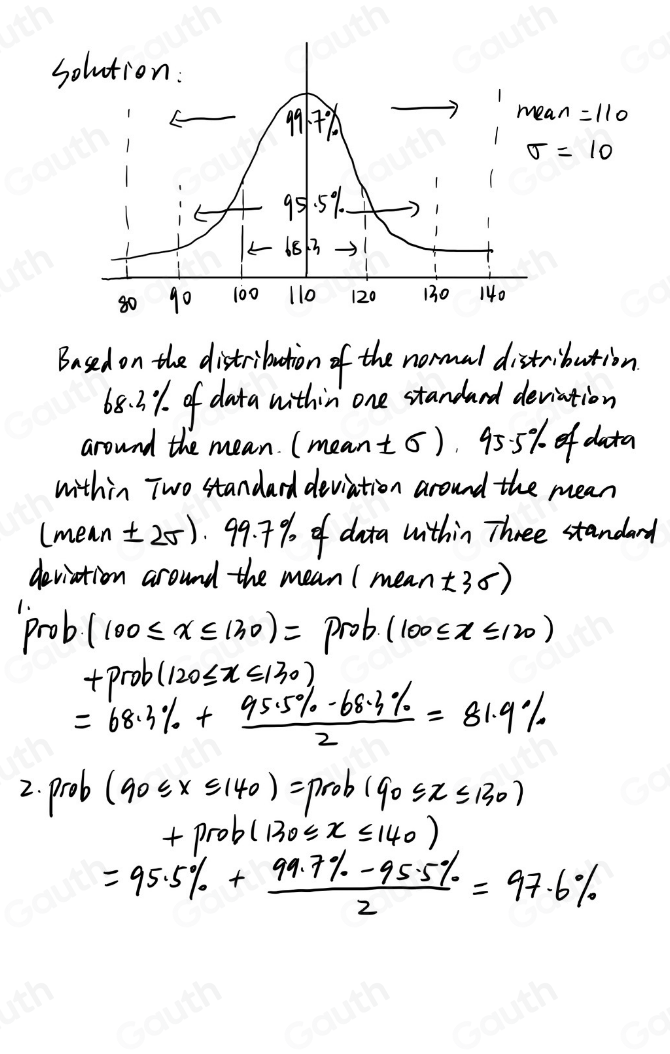 Solution:
99.7%
mean = 110
σ = 10
95.5%
68.3
80 90 100 110 120 130 140
Based on the distribution of the normal distribution.
68.3% of data within one standard deviation
around the mean. (mean ± σ). 95.5% of data
within Two standard deviation around the mean
(mean ± 2σ). 99.7% of data within Three standard
deviation around the mean (mean ± 3σ)
1.
prob.(100 ≤ x ≤ 130) = prob.(100 ≤ x ≤ 120)
+ prob(120 ≤ x ≤ 130)
= 68.3% + (95.5% - 68.3%)/2 = 81.9%
2. prob (90 ≤ x ≤ 140) = prob(90 ≤ x ≤ 130)
+ prob(130 ≤ x ≤ 140)
= 95.5% + (99.7% - 95.5%)/2 = 97.6%
Gauth